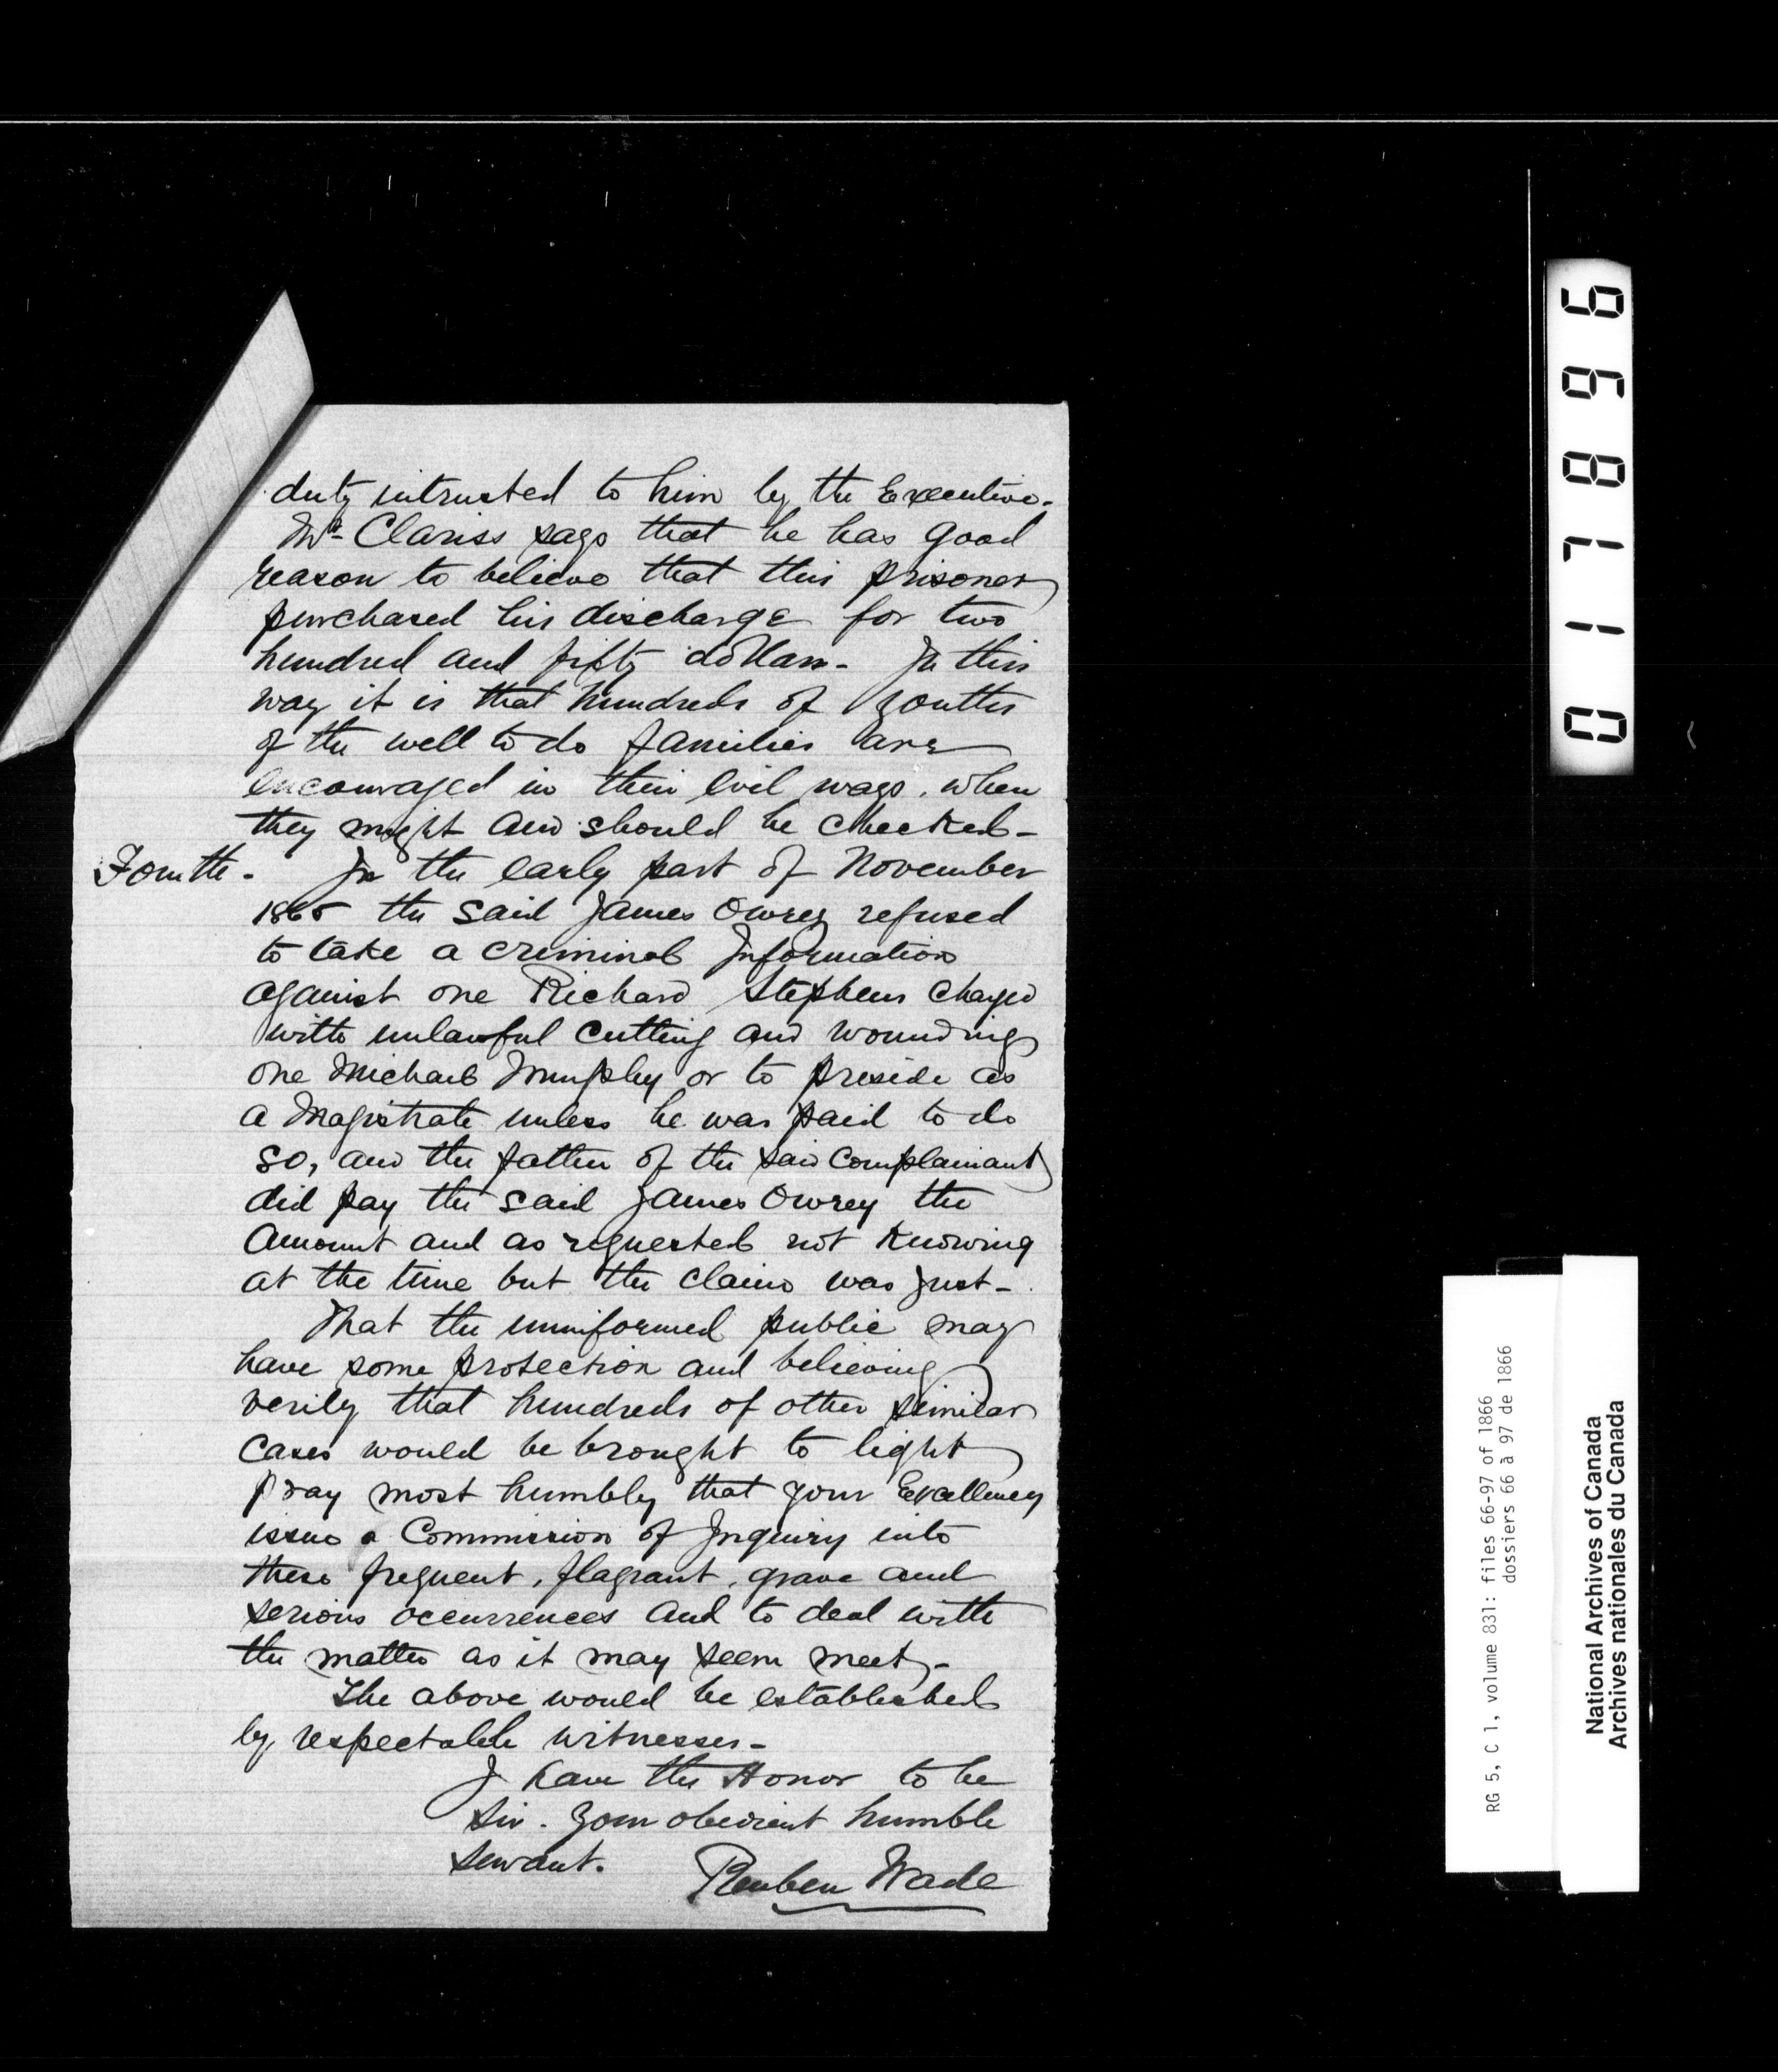 duty intrusted to him by the Executive.
Mr. Clariss says that he has good
reason to believe that this prisoner
purchased his discharge for two
hundred and fifty dollars - In this
way it is that hundreds of youths
of the well to do families are
encouraged in their evil ways. when
they might and should be checked -
Fourth - In the early part of November
1865 the said James Owrey refused
to take a criminal Information
against one Richard Stephens charged
with unlawful cutting and wounding
one Michael Murphy or to preside as
a Magistrate unless he was paid to do
so, and the father of the said Complainant
did pay the said James Owrey the
Amount and as requested not Knowing
at the time but the claim was just -
That the uninformed public may
have some protection and believing
verily that hundreds of other similar
cases would be brought to light
pray most humbly that your Excellency
issue a Commission of Inquiry into
these frequent, flagrant, grave and
serious occurrences and to deal with
the matter as it may seem meet -
The above would be established
by respectable witnesses -
I have the Honor to be
Sir. Your obedient humble
servant.
Reuben Wade
017896
RG 5, C 1, volume 831: files 66-97 of 1866
dossiers 66 à 97 de 1866
National Archives of Canada
Archives nationales du Canada